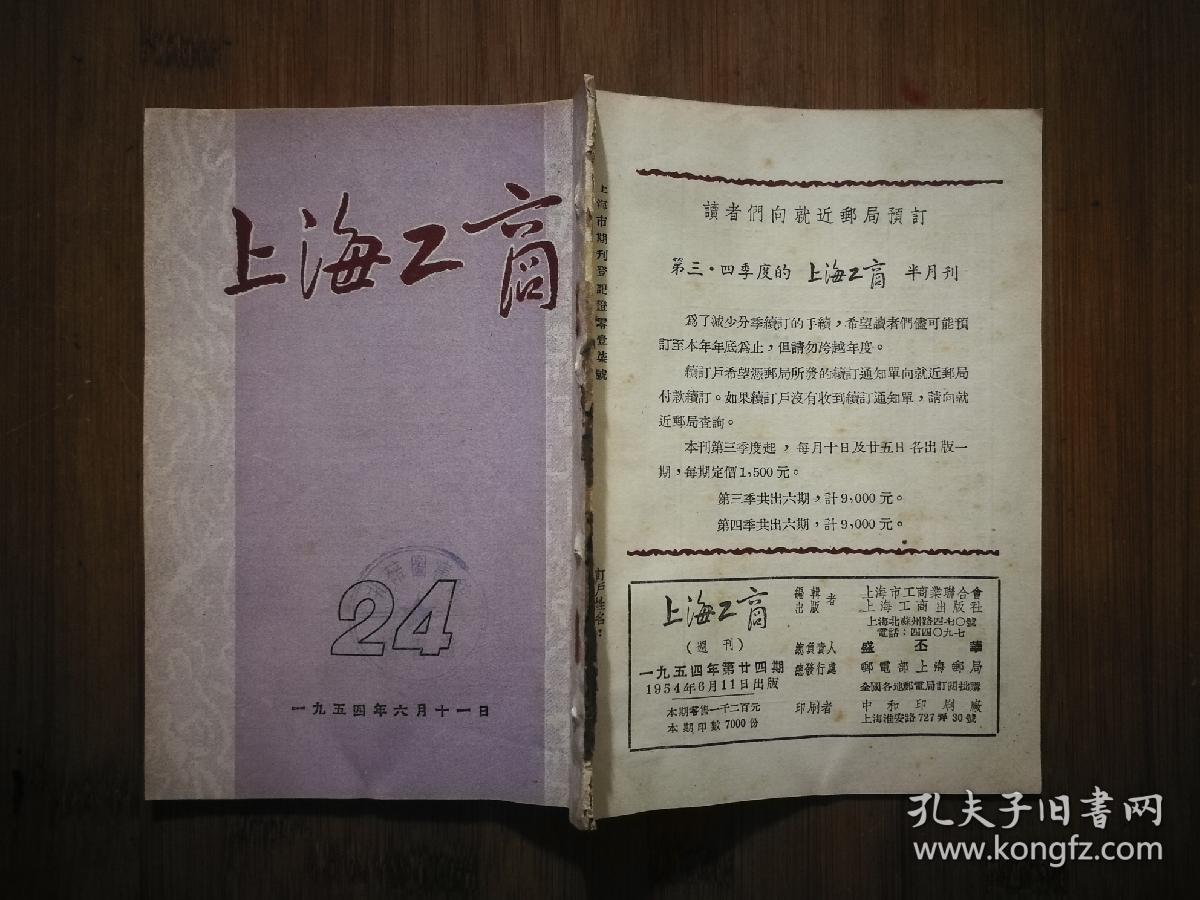 上海工商
24
一九五四年六月十一日
上海市期刊登記證零壹柒號
訂戶姓名：
讀者們向就近郵局預訂
第三·四季度的 上海工商 半月刊
爲了減少分季續訂的手續，希望讀者們儘可能預
訂至本年年底爲止，但請勿跨越年度。
續訂戶希望憑郵局所發的續訂通知單向就近郵局
付款續訂。如果續訂戶沒有收到續訂通知單，請向就
近郵局查詢。
本刊第三季度起，每月十日及廿五日各出版一
期，每期定價1,500元。
第三季共出六期，計9,000元。
第四季共出六期，計9,000元。
上海工商
（週刊）
一九五四年第廿四期
1954年6月11日出版
本期零售一千二百元
本期印數7000份
編輯出版者 上海市工商業聯合會
上海工商出版社
上海北蘇州路四七〇號
電話：四四〇九七
總負責人 盛丕華
總發行處 郵電部上海郵局
全國各地郵電局訂閱批購
印刷者 中和印刷廠
上海淮安路727弄30號
孔夫子旧书网
www.kongfz.com